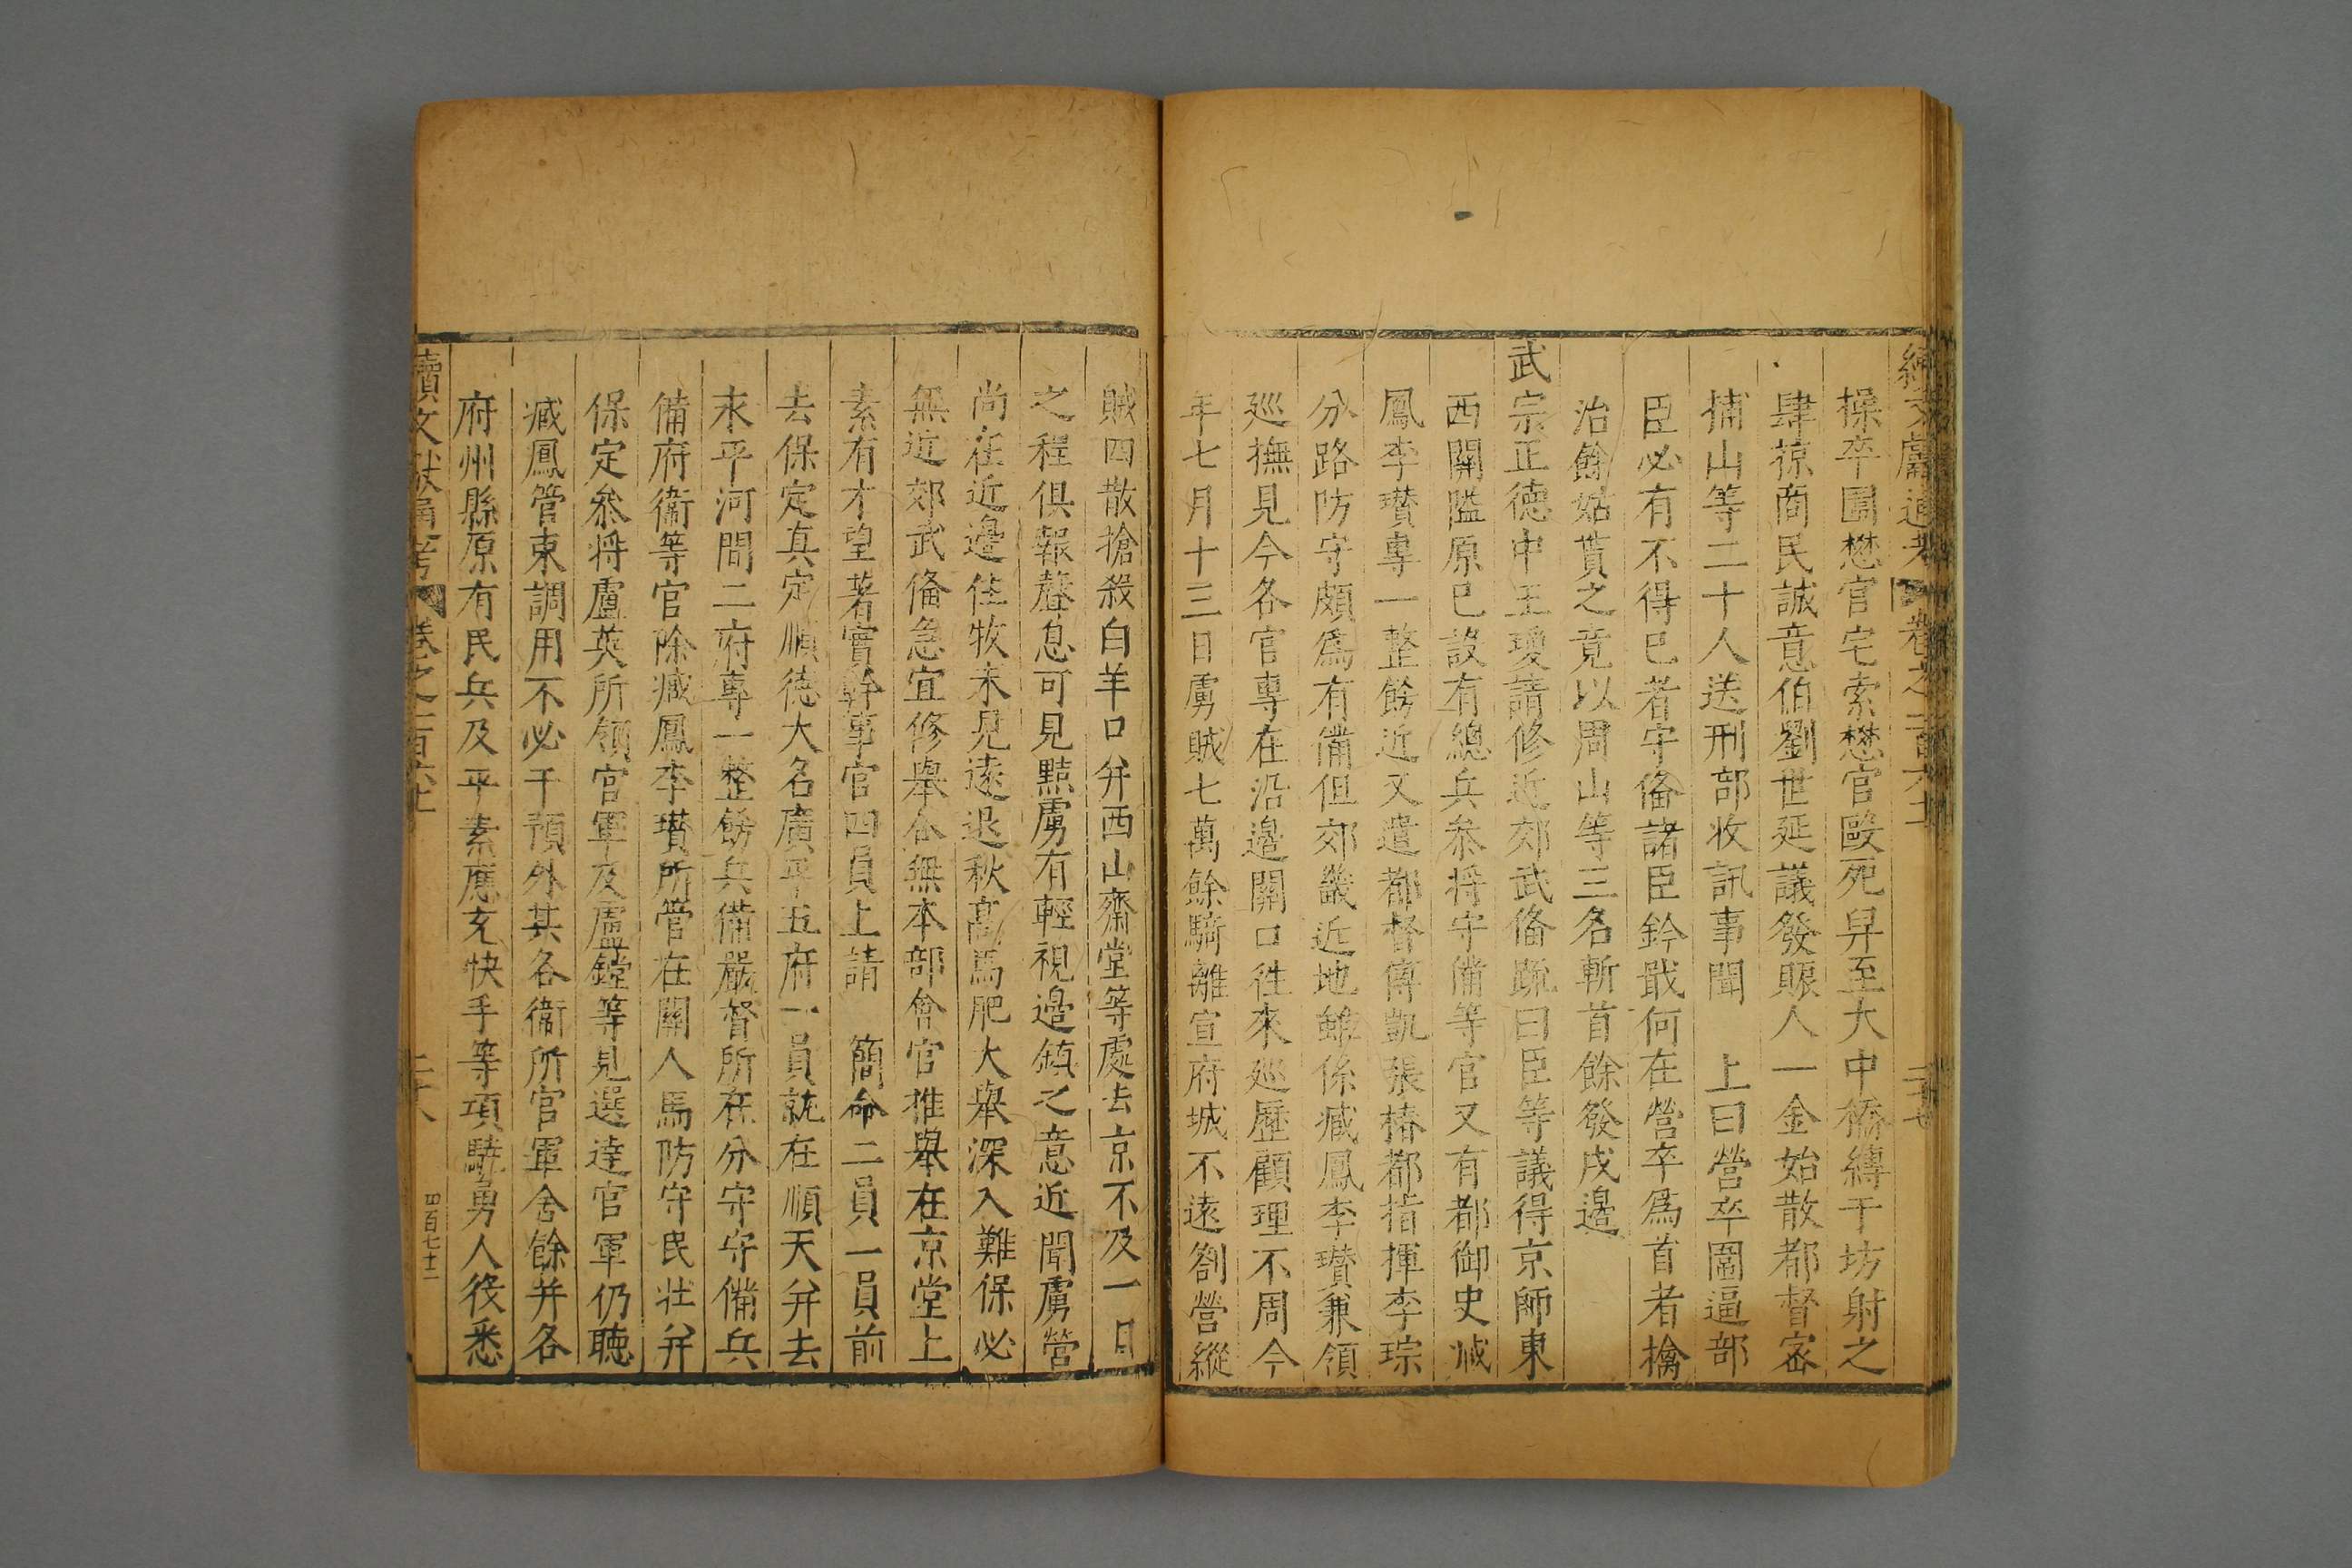 續文獻通考 卷之一百六十
操卒圍懋官宅索懋官毆死舁至大中橋縛于坊射之
肆掠商民誠意伯劉世延議發賑人一金始散都督密
捕山等二十人送刑部收訊事聞 上曰營卒圍逼部
臣必有不得已者守備諸臣鈐戢何在營卒爲首者擒
治餘姑貰之竟以周山等三名斬首餘發戍邊
武宗正德中王瓊請修近郊武備疏曰臣等議得京師東
西關隘原已設有總兵叅將守備等官又有都御史臧
鳳李瓚專一整飭近又遣都督傅凱張椿都指揮李琮
分路防守頗爲有備但郊畿近地雖係臧鳳李瓚兼領
巡撫見今各官專在沿邊關口徃來巡歷顧理不周今
年七月十三日虜賊七萬餘騎離宣府城不遠劄營縱
賊四散搶殺白羊口并西山齋堂等處去京不及一日
之程俱報聲息可見黠虜有輕視邊鎮之意近聞虜營
尚在近邊住牧未見遠退秋高馬肥大舉深入難保必
無近郊武俻急宜修舉合無本部會官推舉在京堂上
素有才望著實幹事官四員上請 簡命二員一員前
去保定真定順德大名廣平五府一員就在順天并去
永平河間二府專一整飭兵備嚴督所在分守守備兵
備府衛等官除臧鳳李瓚所管在關人馬防守民壯并
保定叅將盧英所領官軍及盧鏜等見選逹官軍仍聽
臧鳳管束調用不必干預外其各衛所官軍舍餘并各
府州縣原有民兵及平素應充快手等項驍勇人役悉
續文獻通考 卷之一百六十 二十八 四百七十二